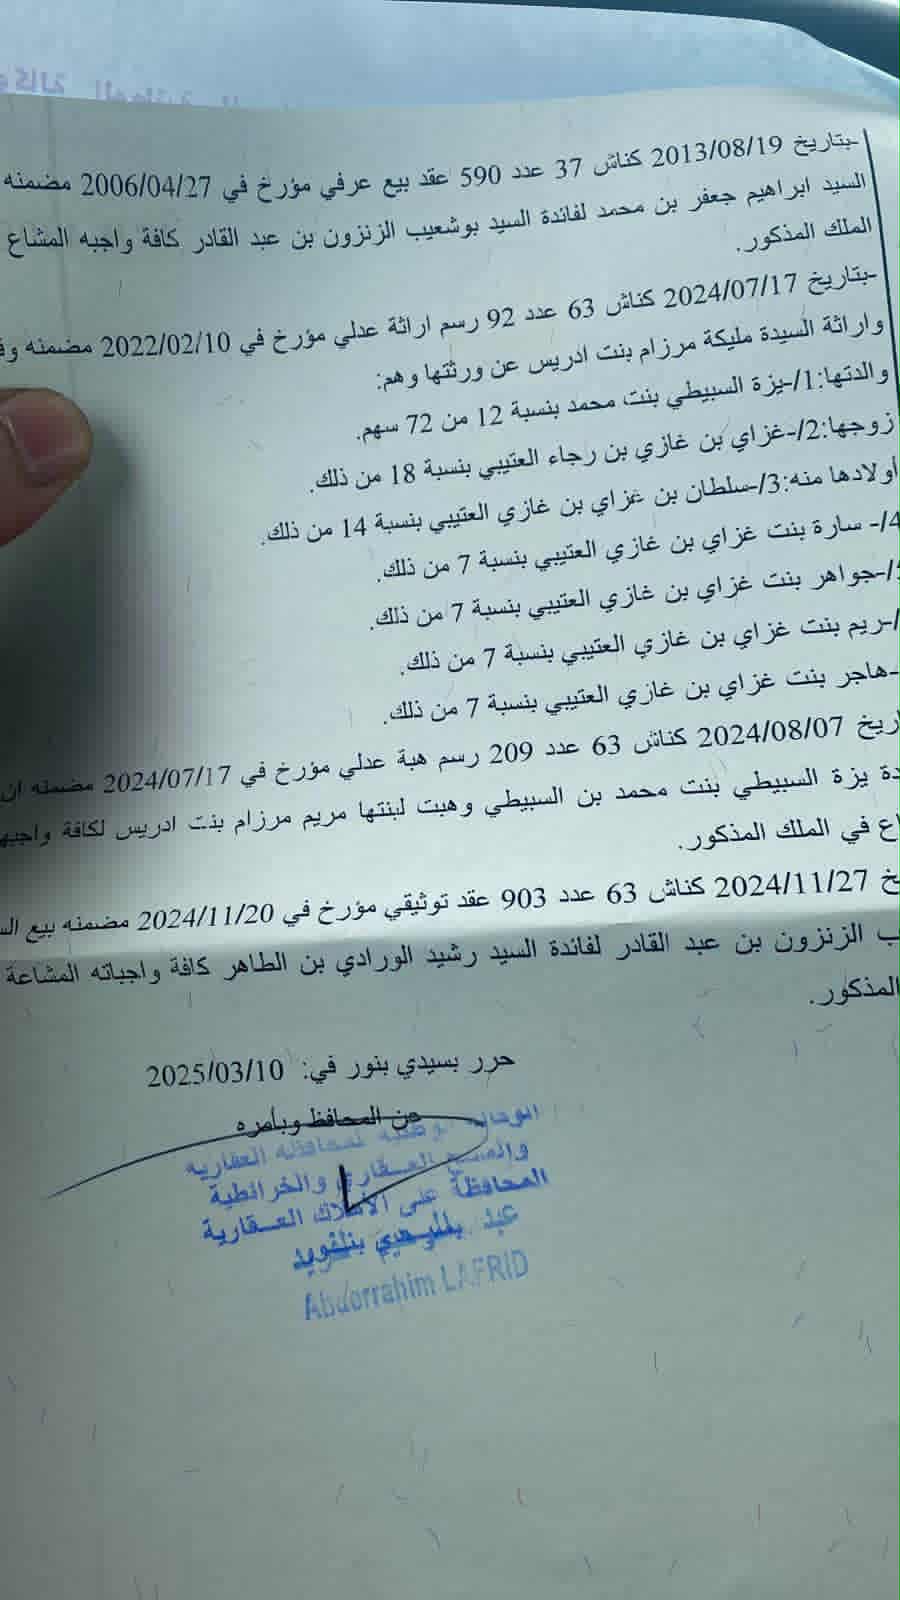 -بتاريخ 2013/08/19 كناش 37 عدد 590 عقد بيع عرفي مؤرخ في 2006/04/27 مضمنه
السيد ابراهيم جعفر بن محمد لفائدة السيد بوشعيب الزنزون بن عبد القادر كافة واجبه المشاع
الملك المذكور.
-بتاريخ 2024/07/17 كناش 63 عدد 92 رسم اراثة عدلي مؤرخ في 2022/02/10 مضمنه
واراثة السيدة مليكة مرزام بنت ادريس عن ورثتها وهم:
والدتها:1/-يزة السبيطي بنت محمد بنسبة 12 من 72 سهم.
زوجها:2/-غزاي بن غازي بن رجاء العتيبي بنسبة 18 من ذلك.
أولادها منه:3/-سلطان بن غزاي بن غازي العتيبي بنسبة 14 من ذلك.
4/- سارة بنت غزاي بن غازي العتيبي بنسبة 7 من ذلك.
/-جواهر بنت غزاي بن غازي العتيبي بنسبة 7 من ذلك.
/-ريم بنت غزاي بن غازي العتيبي بنسبة 7 من ذلك.
-هاجر بنت غزاي بن غازي العتيبي بنسبة 7 من ذلك.
اريخ 2024/08/07 كناش 63 عدد 209 رسم هبة عدلي مؤرخ في 2024/07/17 مضمنه ان
دة يزة السبيطي بنت محمد بن السبيطي وهبت لبنتها مريم مرزام بنت ادريس لكافة واجبه
اع في الملك المذكور.
خ 2024/11/27 كناش 63 عدد 903 عقد توثيقي مؤرخ في 2024/11/20 مضمنه بيع الس
ب الزنزون بن عبد القادر لفائدة السيد رشيد الورادي بن الطاهر كافة واجباته المشاعة
المذكور.
حرر بسيدي بنور في: 2025/03/10
عن المحافظ وبأمره
الوكالة الوطنية للمحافظة العقارية
والمسح العقاري والخرائطية
المحافظة على الأملاك العقارية
سيدي بنور
Abderrahim LAFRID